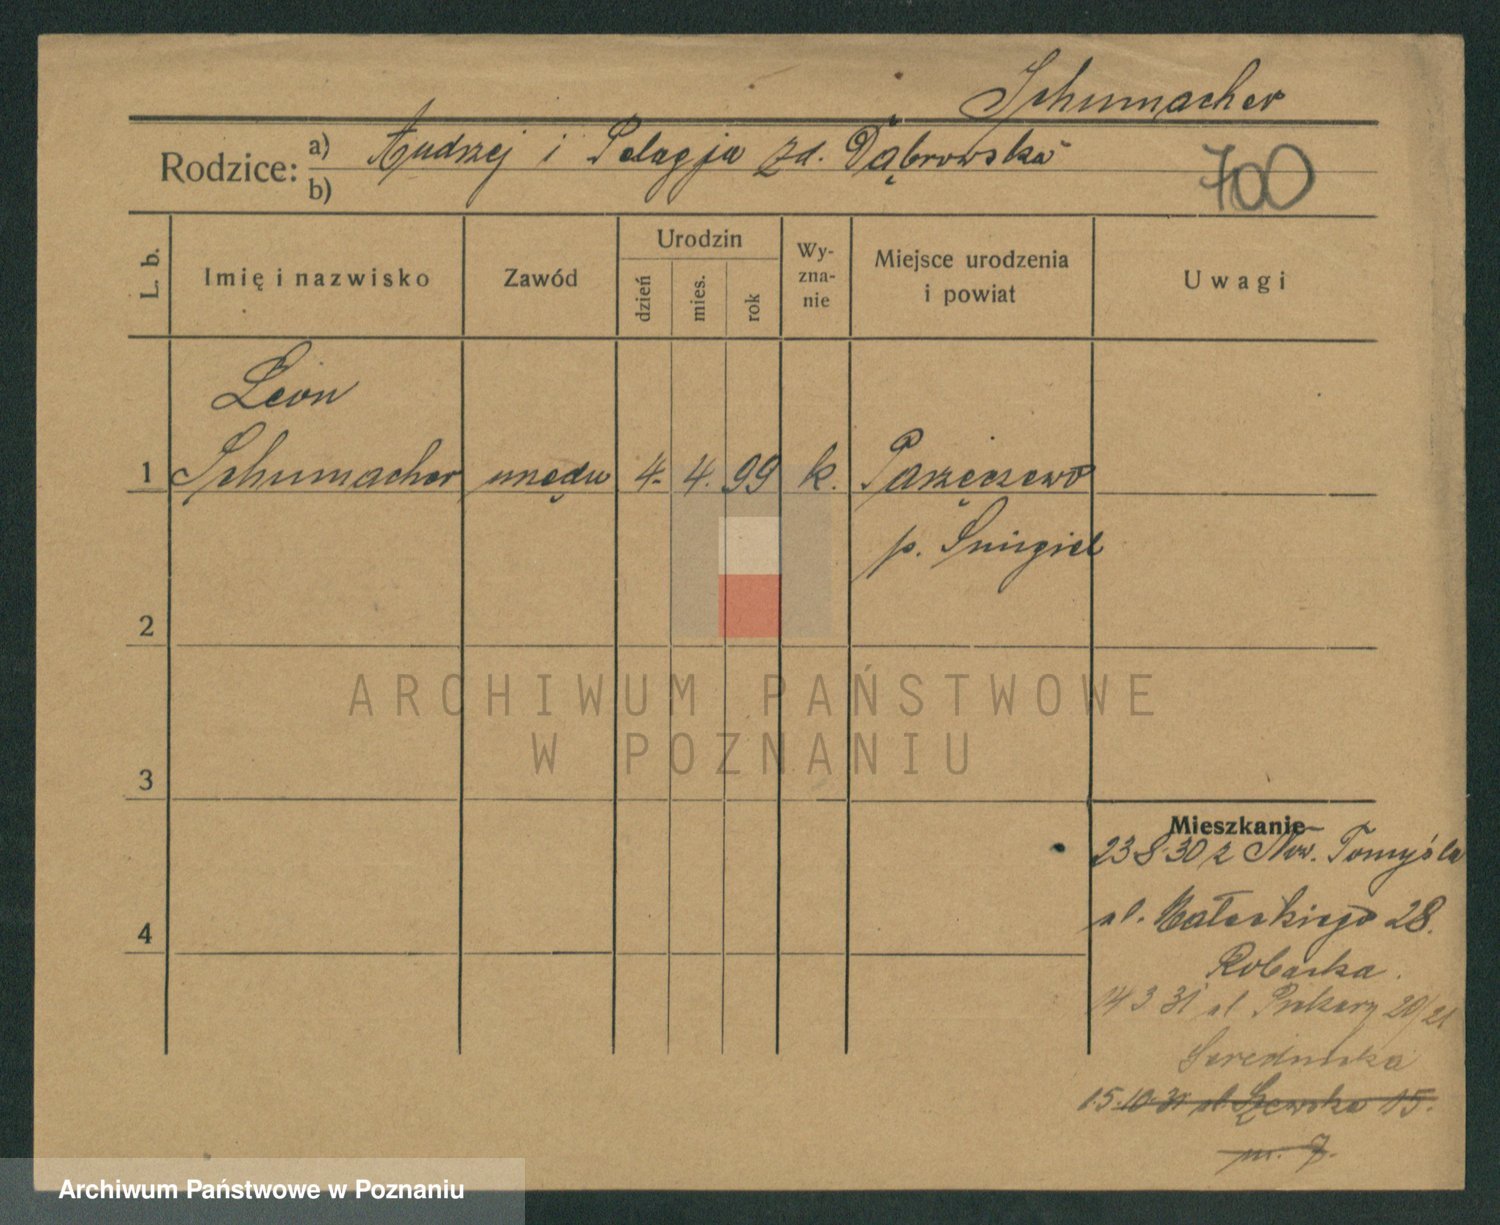 Schumacher
Rodzice: a) Andrzej i Pelagja zd. Dąbrowska
b)
700
L. b.
Imię i nazwisko
Zawód
Urodzin
dzień
mies.
rok
Wy-
zna-
nie
Miejsce urodzenia
i powiat
Uwagi
Leon
1 Schumacher urzędn 4. 4. 99 k. Parzęczewo
p. Śmigiel
2
ARCHIWUM PAŃSTWOWE
W POZNANIU
3
Mieszkanie
23 8. 30 z Now. Tomyśla
4
ul. Małeckiego 28.
14 3 31 ul 20/21
15.10.31 ul. Szewska 15.
m. 7.
Archiwum Państwowe w Poznaniu